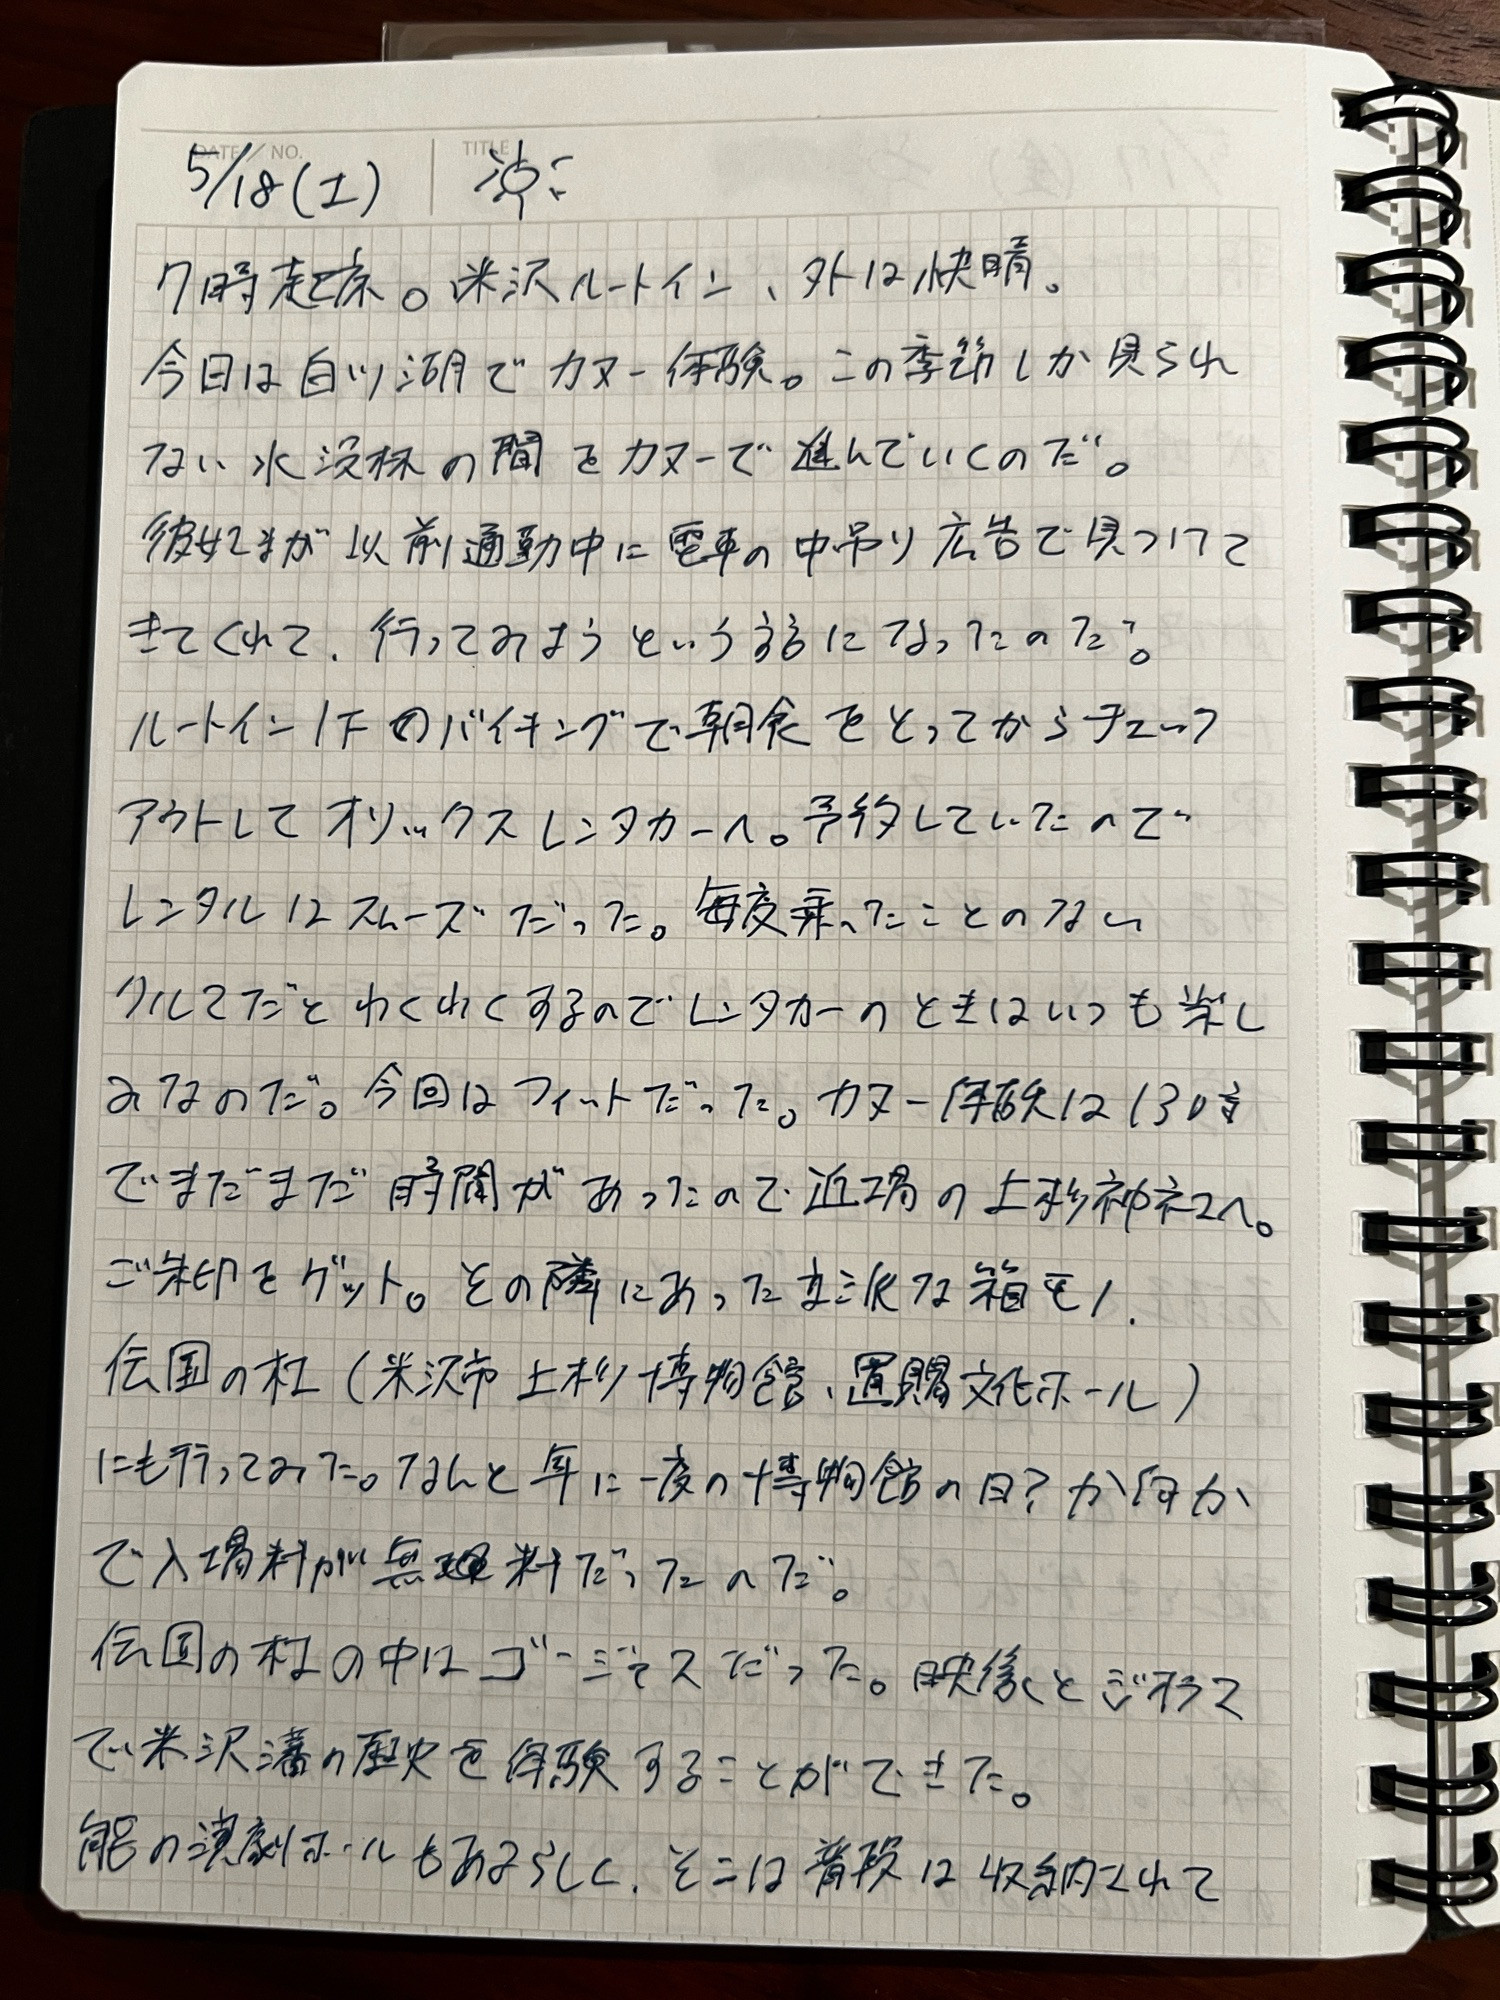 DATE / NO.
TITLE
5/18(土)
7時起床。米沢ルートイン、外は快晴。
今日は白川湖でカヌー体験。この季節しか見られ
ない水没林の間をカヌーで進んでいくのだ。
彼女さまが以前通勤中に電車の中吊り広告で見つけて
きてくれて、行ってみようという話になったのだ。
ルートイン1Fのバイキングで朝食をとってからチェック
アウトしてオリックスレンタカーへ。予約していたので
レンタルはスムーズだった。毎度乗ったことのない
クルマだとわくわくするのでレンタカーのときはいつも楽し
みなのだ。今回はフィットだった。カヌー体験は13時
でまだまだ時間があったので近場の上杉神社へ。
ご朱印をゲット。その隣にあった立派な箱モノ、
伝国の杜(米沢市上杉博物館、置賜文化ホール)
にも行ってみた。なんと年に一度の博物館の日?か何か
で入場料が無料だったのだ。
伝国の杜の中はゴージャスだった。映像とジオラマ
で米沢藩の歴史を体験することができた。
能の演劇ホールもあるらしく、そこは普段は収納されて